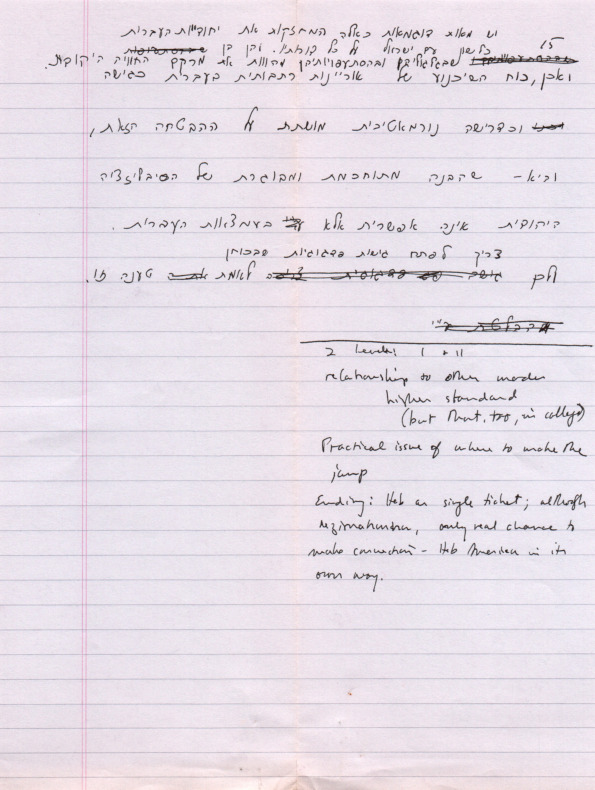 יש מאות דוגמאות כאלה המחזקות את יחודיות העברית
15
כלשון עם ישראל על כל דורותיו. והן הן
שבגלגוליהן ובהסתעפויותיהן מהוות את מרקם החוויה היהודית.
ואכן, כוח השיכנוע של אוריינות תרבותית בעברית כגישה
וכדרישה נורמאטיבית מושתת על ההבטחה הזאת,
והיא - שהבנה מתוחכמת ומבוגרת של הסיביליזציה
היהודית אינה אפשרית אלא בעמצאות העברית.
צריך לפתח גישות פדגוגיות שבכוחן
ולכן לאמת טענה זו.
2 levels I + II
relationship to other modes
higher standard
(but that, too, in college)
Practical issue of where to make the
jump
Ending: Heb as single ticket; although
only real chance to
make connection - Heb America in its
own way.